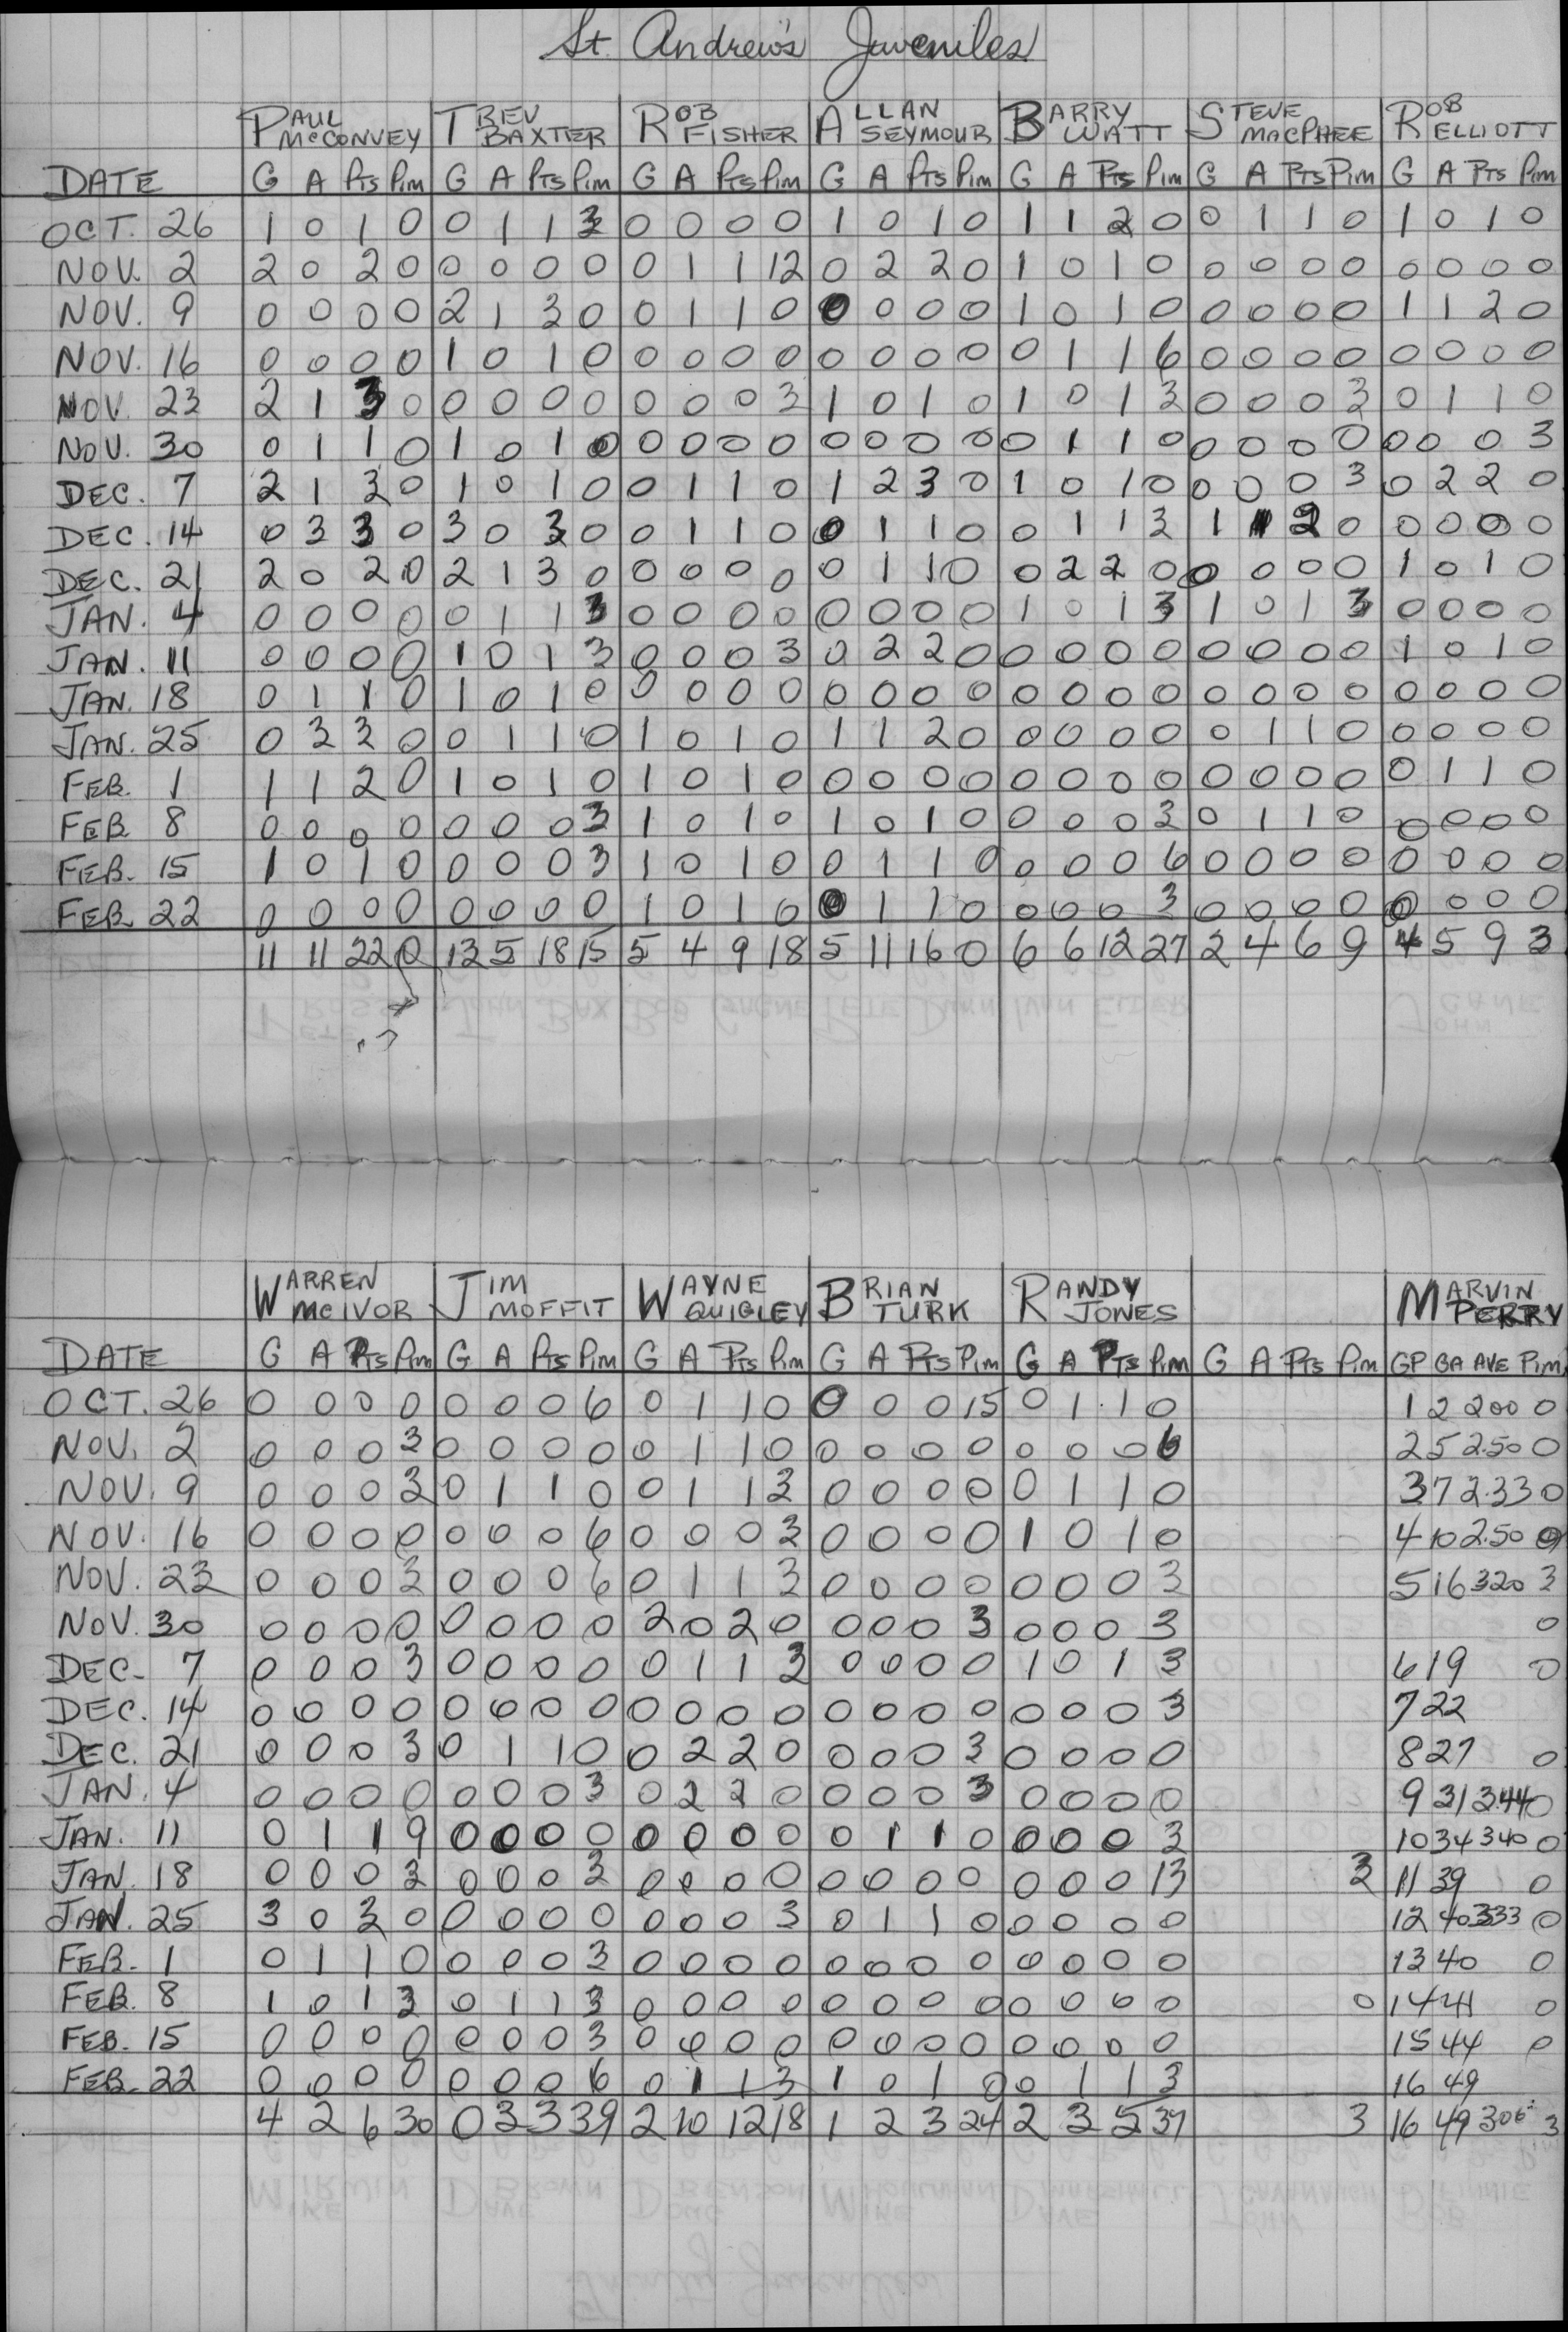 St. Andrew's Juveniles
PAUL McCONVEY TREV BAXTER ROB FISHER ALLAN SEYMOUR BARRY WATT STEVE MACPHEE ROB ELLIOTT
DATE G A Pts Pim G A Pts Pim G A Pts Pim G A Pts Pim G A Pts Pim G A Pts Pim G A Pts Pim
OCT. 26 1 0 1 0 0 1 1 3 0 0 0 0 1 0 1 0 1 1 2 0 0 1 1 0 1 0 1 0
NOV. 2 2 0 2 0 0 0 0 0 0 1 1 12 0 2 2 0 1 0 1 0 0 0 0 0 0 0 0 0
NOV. 9 0 0 0 0 2 1 3 0 0 1 1 0 0 0 0 0 1 0 1 0 0 0 0 0 1 1 2 0
NOV. 16 0 0 0 0 1 0 1 0 0 0 0 0 0 0 0 0 0 1 1 6 0 0 0 0 0 0 0 0
NOV. 23 2 1 3 0 0 0 0 0 0 0 0 3 1 0 1 0 1 0 1 3 0 0 0 3 0 1 1 0
NOV. 30 0 1 1 0 1 0 1 0 0 0 0 0 0 0 0 0 0 1 1 0 0 0 0 0 0 0 0 3
DEC. 7 2 1 3 0 1 0 1 0 0 1 1 0 1 2 3 0 1 0 1 0 0 0 0 3 0 2 2 0
DEC. 14 0 3 3 0 3 0 3 0 0 1 1 0 0 1 1 0 0 1 1 3 1 1 2 0 0 0 0 0
DEC. 21 2 0 2 0 2 1 3 0 0 0 0 0 0 1 1 0 0 2 2 0 0 0 0 0 1 0 1 0
JAN. 4 0 0 0 0 0 1 1 3 0 0 0 0 0 0 0 0 1 0 1 3 1 0 1 3 0 0 0 0
JAN. 11 0 0 0 0 1 0 1 3 0 0 0 3 0 2 2 0 0 0 0 0 0 0 0 0 1 0 1 0
JAN. 18 0 1 1 0 1 0 1 0 0 0 0 0 0 0 0 0 0 0 0 0 0 0 0 0 0 0 0 0
JAN. 25 0 3 3 0 0 1 1 0 1 0 1 0 1 1 2 0 0 0 0 0 0 1 1 0 0 0 0 0
FEB. 1 1 1 2 0 1 0 1 0 1 0 1 0 0 0 0 0 0 0 0 0 0 0 0 0 0 1 1 0
FEB 8 0 0 0 0 0 0 0 3 1 0 1 0 1 0 1 0 0 0 0 3 0 1 1 0 0 0 0 0
FEB. 15 1 0 1 0 0 0 0 3 1 0 1 0 0 1 1 0 0 0 0 6 0 0 0 0 0 0 0 0
FEB. 22 0 0 0 0 0 0 0 0 1 0 1 0 0 1 1 0 0 0 0 3 0 0 0 0 0 0 0 0
11 11 22 0 13 5 18 15 5 4 9 18 5 11 16 0 6 6 12 27 2 4 6 9 4 5 9 3
WARREN McIVOR JIM MOFFIT WAYNE QUIGLEY BRIAN TURK RANDY JONES MARVIN PERRY
DATE G A Pts Pim G A Pts Pim G A Pts Pim G A Pts Pim G A Pts Pim G A Pts Pim GP GA AVE Pim
OCT. 26 0 0 0 0 0 0 0 6 0 1 1 0 0 0 0 15 0 1 1 0 1 2 200 0
NOV. 2 0 0 0 3 0 0 0 0 0 1 1 0 0 0 0 0 0 0 0 6 2 5 2.50 0
NOV. 9 0 0 0 3 0 1 1 0 0 1 1 3 0 0 0 0 0 1 1 0 3 7 2.33 0
NOV. 16 0 0 0 0 0 0 0 6 0 0 0 3 0 0 0 0 1 0 1 0 4 10 2.50 0
NOV. 23 0 0 0 3 0 0 0 6 0 1 1 3 0 0 0 0 0 0 0 3 5 16 320 3
NOV. 30 0 0 0 0 0 0 0 0 2 0 2 0 0 0 0 3 0 0 0 3 0
DEC. 7 0 0 0 3 0 0 0 0 0 1 1 3 0 0 0 0 1 0 1 3 6 19 0
DEC. 14 0 0 0 0 0 0 0 0 0 0 0 0 0 0 0 0 0 0 0 3 7 22
DEC. 21 0 0 0 3 0 1 1 0 0 2 2 0 0 0 0 3 0 0 0 0 8 27 0
JAN. 4 0 0 0 0 0 0 0 3 0 2 2 0 0 0 0 3 0 0 0 0 9 31 3.44 0
JAN. 11 0 1 1 9 0 0 0 0 0 0 0 0 0 1 1 0 0 0 0 3 10 34 340 0
JAN. 18 0 0 0 3 0 0 0 3 0 0 0 0 0 0 0 0 0 0 0 13 3 11 39 0
JAN. 25 3 0 3 0 0 0 0 0 0 0 0 3 0 1 1 0 0 0 0 0 12 40 333 0
FEB. 1 0 1 1 0 0 0 0 3 0 0 0 0 0 0 0 0 0 0 0 0 13 40 0
FEB. 8 1 0 1 3 0 1 1 3 0 0 0 0 0 0 0 0 0 0 0 0 0 14 41 0
FEB. 15 0 0 0 0 0 0 0 3 0 0 0 0 0 0 0 0 0 0 0 0 15 44 0
FEB. 22 0 0 0 0 0 0 0 6 0 1 1 3 1 0 1 0 0 1 1 3 16 49
4 2 6 30 0 3 3 39 2 10 12 18 1 2 3 24 2 3 5 37 3 16 49 306 3